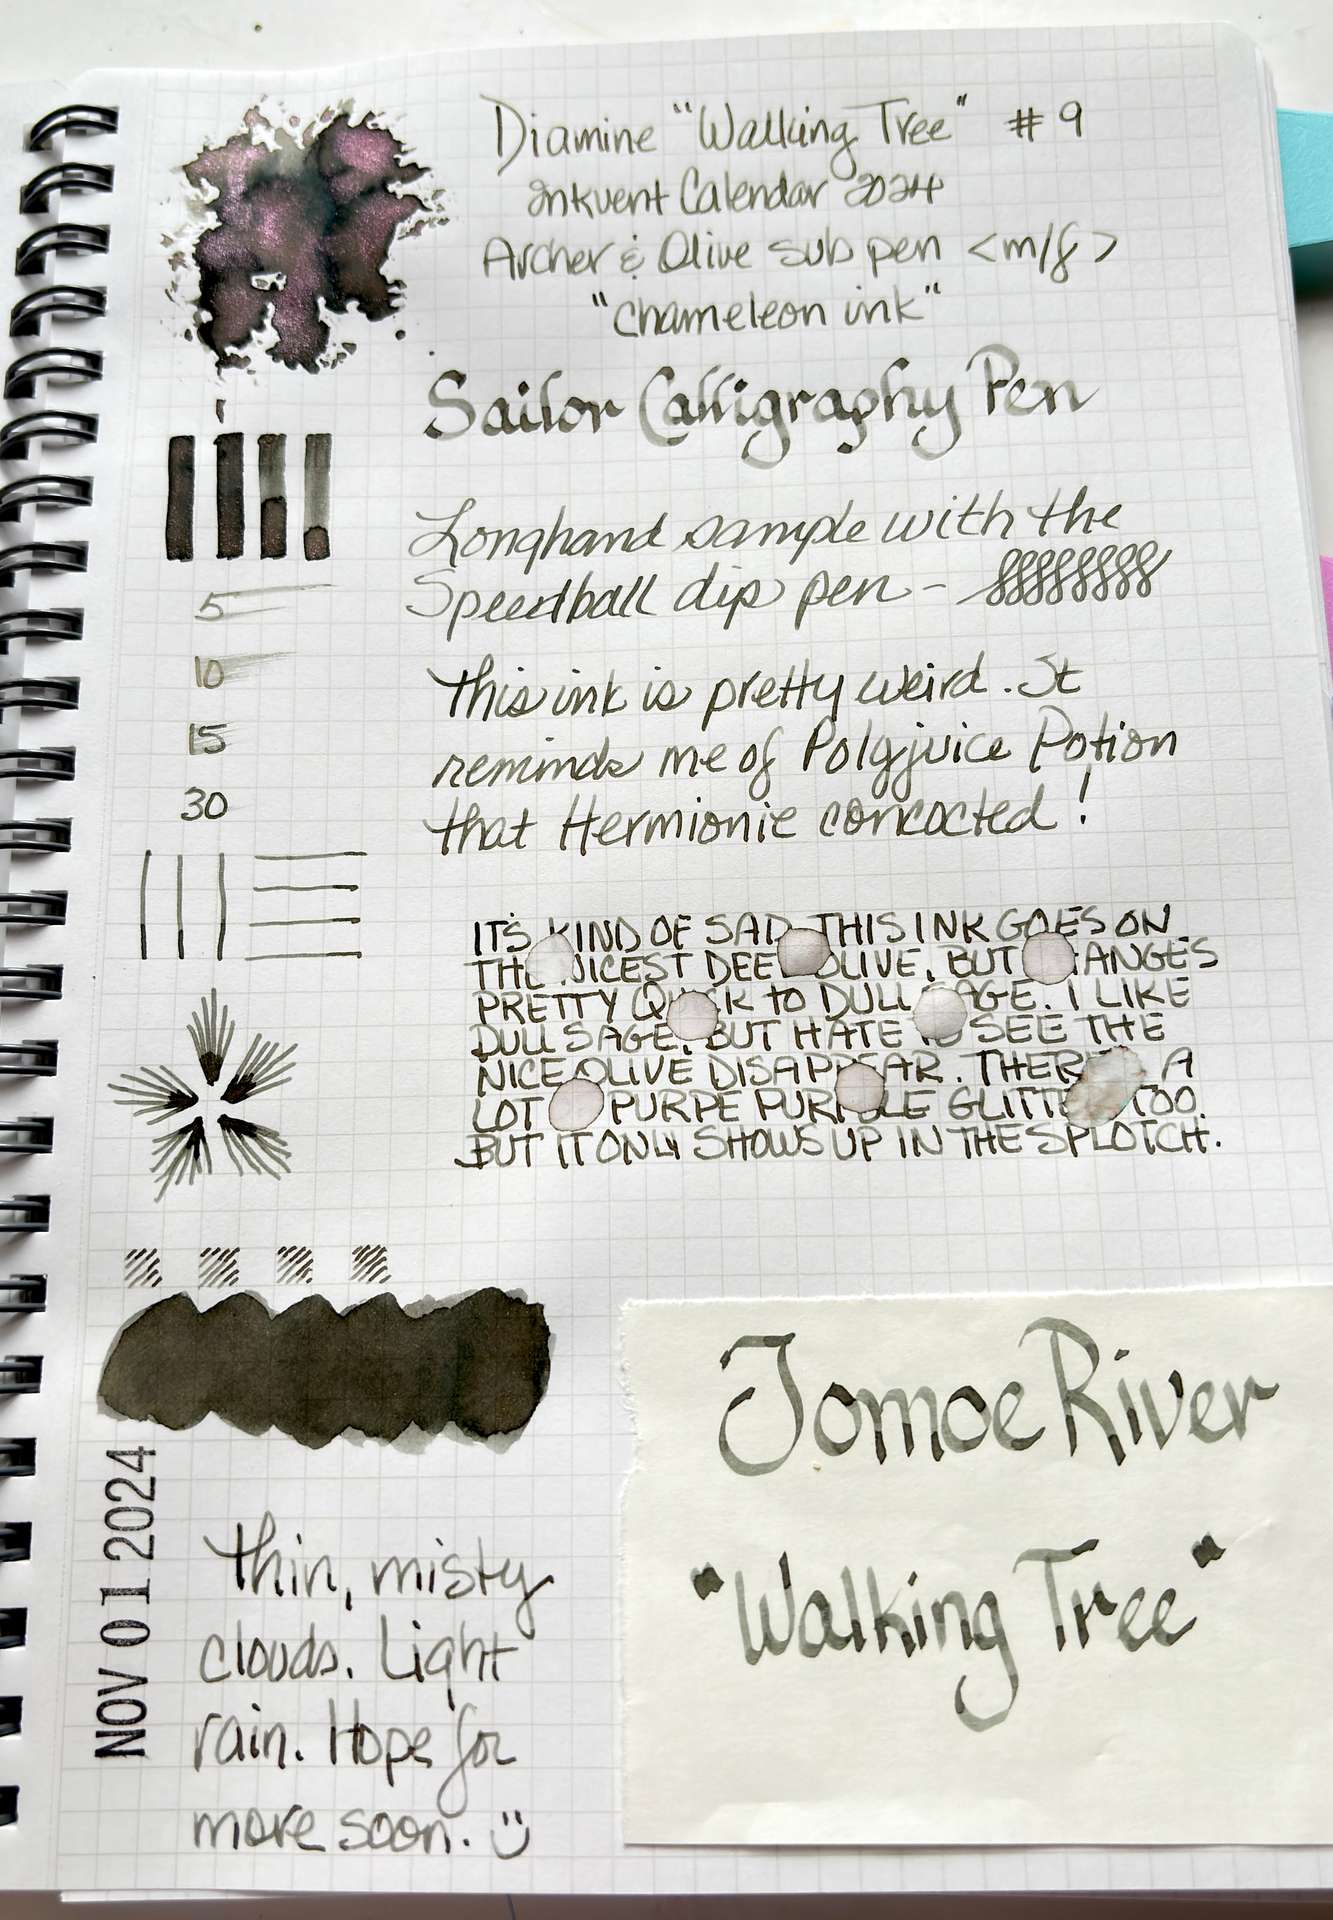 Diamine "Walking Tree" #9
Inkvent Calendar 2024
Archer & Olive sub pen <m/f>
"Chameleon ink"
Sailor Calligraphy Pen
Longhand sample with the
Speedball dip pen -
5
10
15
30
This ink is pretty weird. It
reminds me of Polgjuice Potion
that Hermionie concocted!
IT'S KIND OF SAD THIS INK GOES ON
THE NICEST DEEP OLIVE, BUT CHANGES
PRETTY QUICK to DULL SAGE. I LIKE
DULL SAGE, BUT HATE TO SEE THE
NICE OLIVE DISAPPEAR. THERE A
LOT PURPE PURPLE GLITTER TOO.
BUT IT ONLY SHOWS UP IN THE SPLOTCH.
NOV 01 2024
Thin, misty
clouds. Light
rain. Hope for
more soon.
Tomoe River
"Walking Tree"